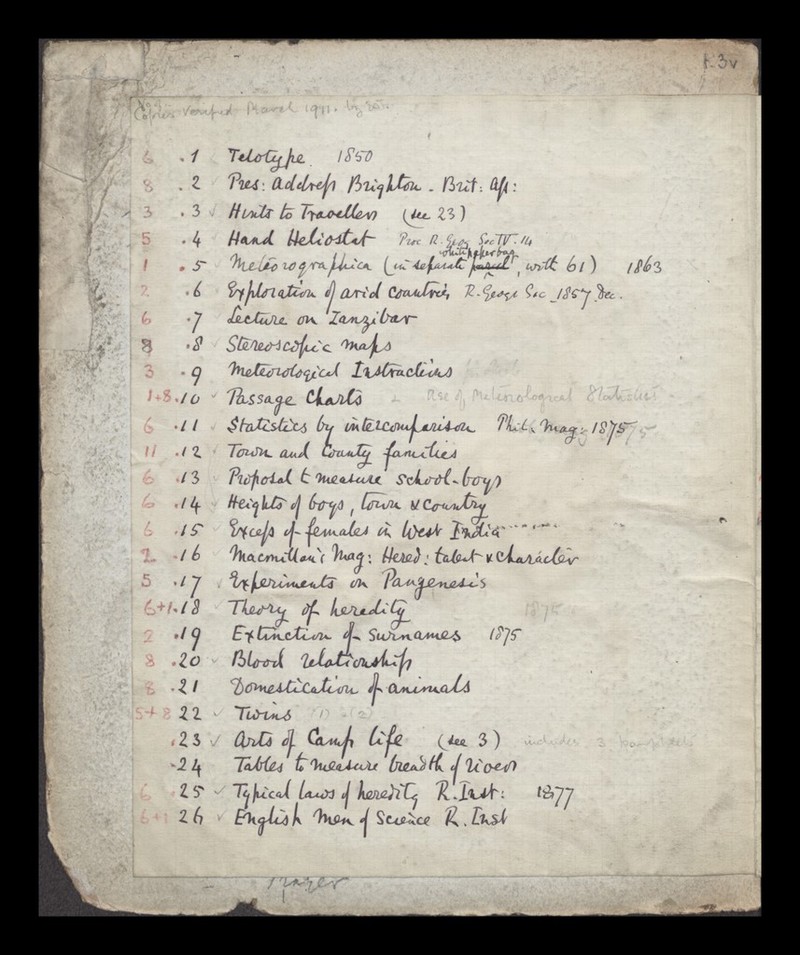 f. 3v
Copies verified March 1911. by
6 .1 Telotype. 1850
8 .2 Pres: Addreſs Brighton - Brit: Aſs:
3 .3 ✓ Hints to Travellers (see 23)
5 .4 Hand Heliostat Proc R. Geog Soc IV. 14
white paper bag
1 .5 Meteorographica (in separate parcel, with 61) 1863
2 .6 Exploration of arid countries R. Geogr Soc 1857 Dec.
6 .7 Lecture on Zanzibar
8 .8 ✓ Stereoscopic maps
3 .9 Meteorological Instructions
1+8 .10 ✓ Passage Charts & Rse of Meteorological Statistics
6 .11 ✓ Statistics by intercomparison Phil: Mag: 1875
11 .12 Town and County families
6 .13 Proposal to measure school-boys
6 .14 ✓ Heights of boys, town & country
6 .15 Exceſs of females in West India
2 .16 Macmillan's Mag: Hered: talent & character
5 .17 ✓ Experiments on Pangenesis
6+1 .18 ✓ Theory of heredity 1875
2 .19 Extinction of surnames 1875
8 .20 ✓ Blood relationship
8 .21 Domestication of animals
5+8 22 ✓ Twins (1) (2)
.23 ✓ Arts of Camp life (see 3) includes 3 pamphlets
.24 Tables to measure breadth of rivers
6 .25 ✓ Typical laws of heredity R. Inst: 1877
6+1 26 ✓ English Men of Science R. Inst